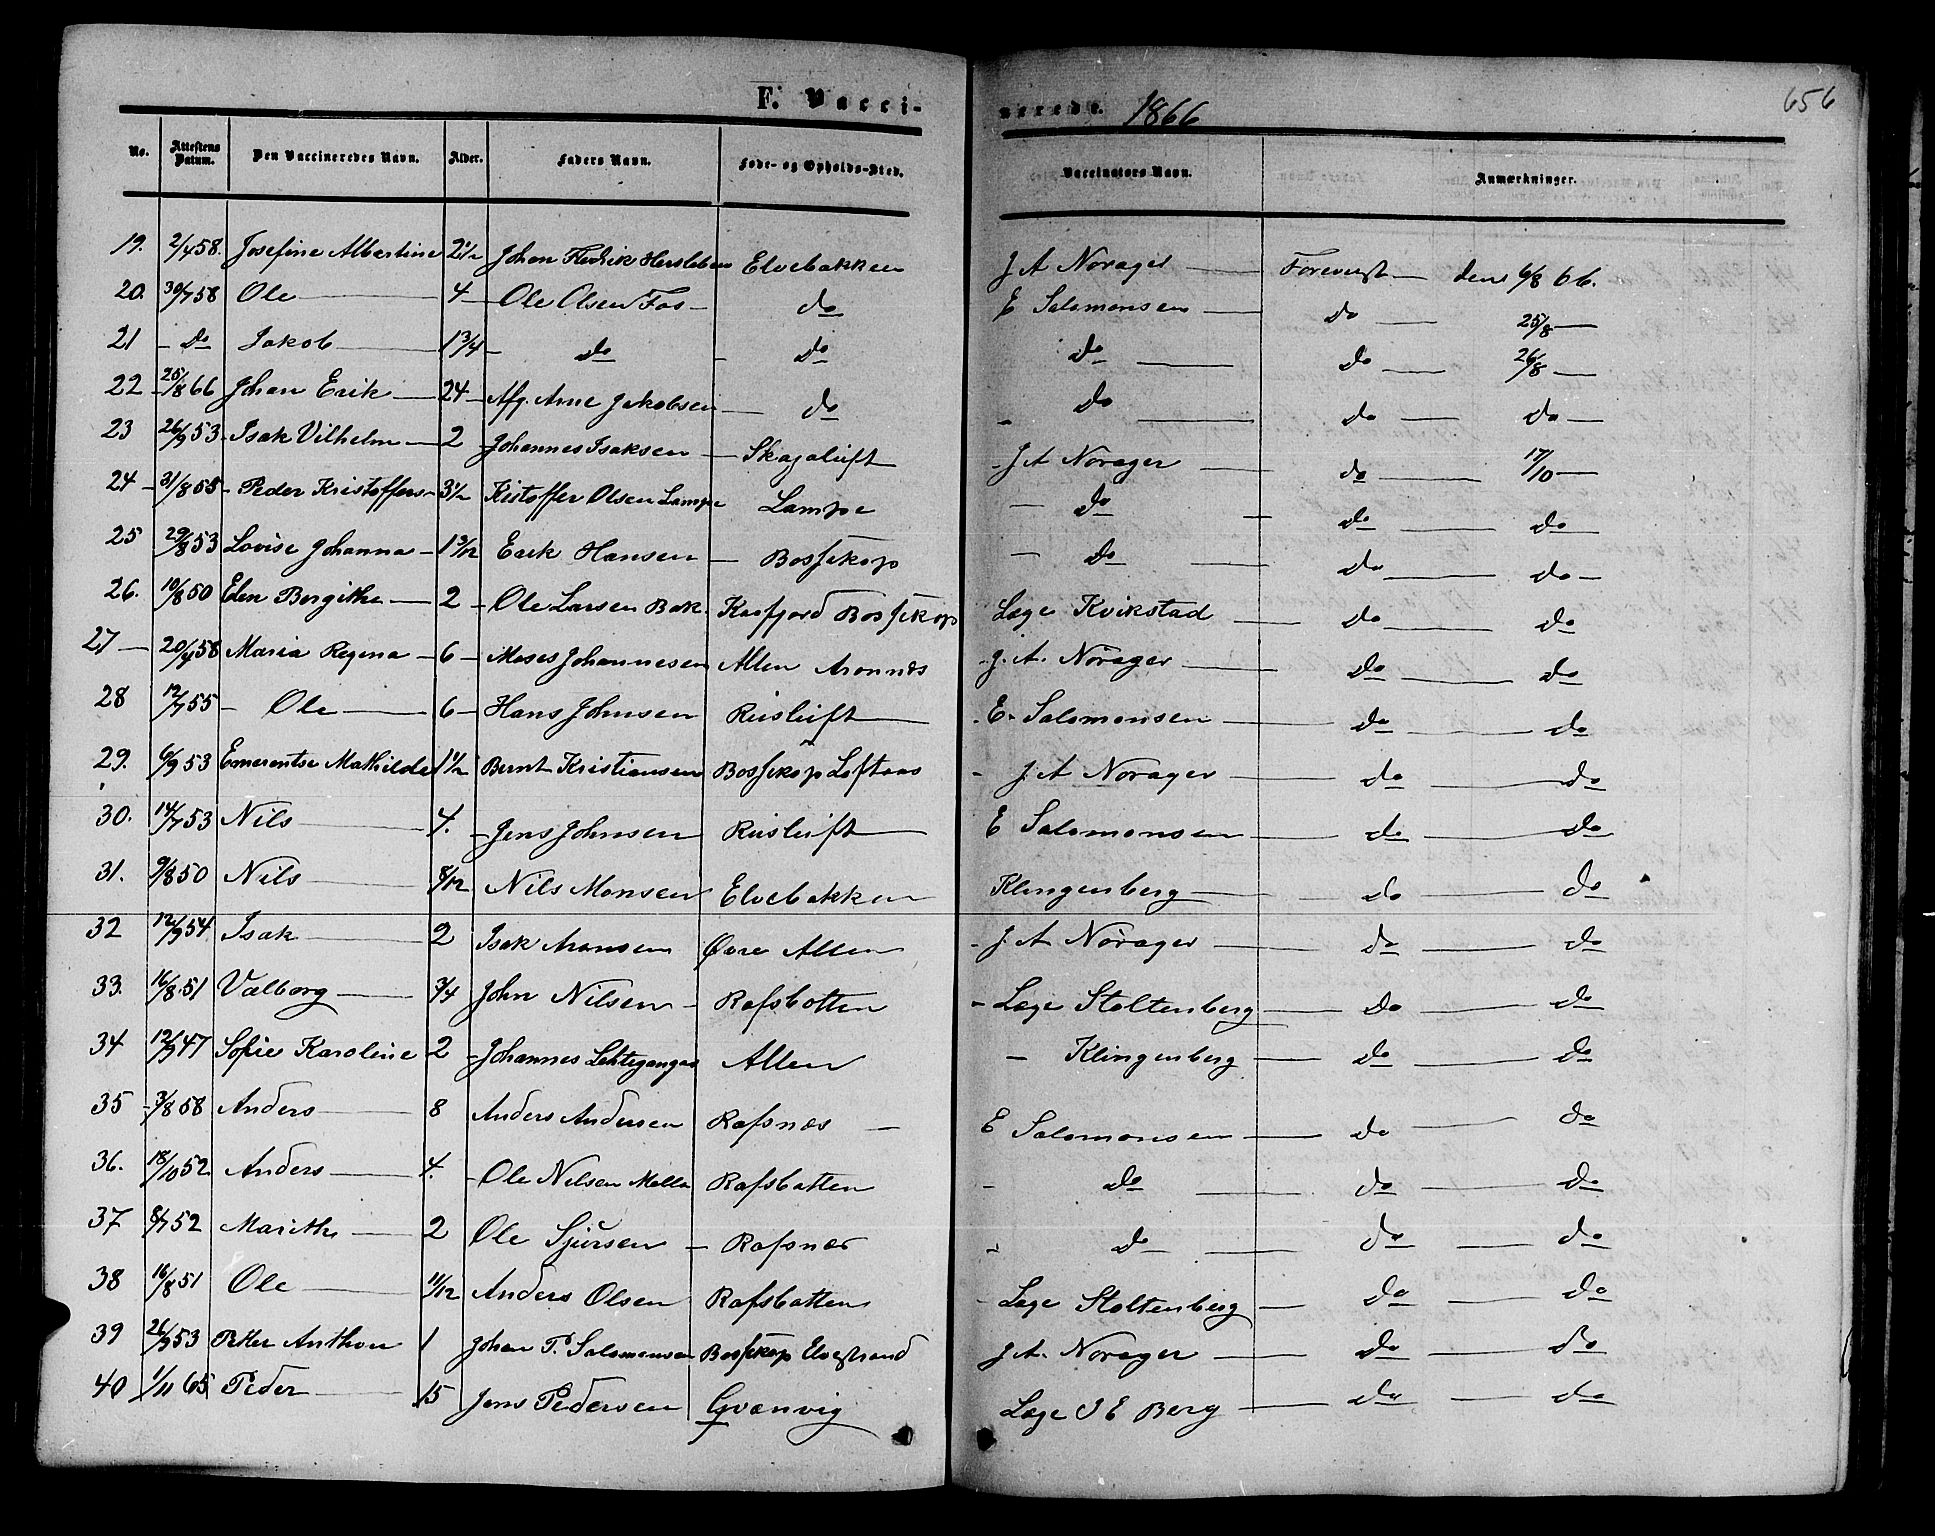 F. Vacci-nerede. 1866 656
No. Attestens Datum. Den Vaccineredes Navn. Alder. Faders Navn. Føde- og Opholds-Sted. Vaccinators Navn. Anmærkninger.
19. 2/4 58. Josefine Albertine 2 1/2 Johan Fredrik Hersleben Elvebakken J. A Norager Forevist den 6/8 66.
20. 30/7 58 Ole 4 Ole Olsen Fos do E Salomonsen do 25/8
21 do Jakob 1 3/4 do do do do 26/8
22 25/8 66 Johan Erik 24 Afg. Arne Jakobsen do do do do
23 26/9 53 Isak Vilhelm 2 Johannes Isaksen Skogaluft J. A Norager do 17/10
24 31/8 58 Peder Kristoffers 3 1/2 Kristoffer Olsen Lampe Lampe do do do
25 29/8 53 Lovise Johanna 1 3/12 Erik Hansen Bossekop do do do
26. 10/8 50 Elen Bergithe 2 Ole Larsen Bak. Kaafjord Bossekop Læge Kvikstad do do
27 20/4 58 Maria Regina 6 Moses Johannesen Alten Aronnæs J. A. Norager do do
28 12/7 55 Ole 6 Hans Johnsen Rusluft E. Salomonsen do do
29. 6/9 53 Emerentse Mathilde 1 1/2 Bernt Kristiansen Bossekop J. A Norager do do
30. 14/7 53 Nils 4. Jens Johnsen Rusluft E Salomonsen do do
31. 9/8 50 Nils 8/12 Nils Monsen Elvebakken Klingenberg do do
32 12/9 54 Isak 2 Isak Aronsen Øvre Alten J. A Norager do do
33. 16/8 51 Valborg 3/4 John Nilsen Rafsbotten Læge Stoltenberg do do
34 12/9 47 Sofie Karoline 2 Johannes Alten Klingenberg do do
35 3/8 58 Anders 8 Anders Andersen Rafsnæs E Salomonsen do do
36. 18/10 52 Anders 4. Ole Nilsen Mella Rafsbotten do do do
37 8/7 52 Marithe 2 Ole Sjursen Rafsnæs do do do
38 16/8 51 Ole 11/12 Anders Olsen Rafsbotten Læge Stoltenberg do do
39 26/9 53 Petter Anthon 1 Johan P. Salomonsen Bossekop Elvestrand J. A. Norager do do
40 1/11 65 Peder 15 Jens Pedersen Qvænvig Læge J E Berg do do